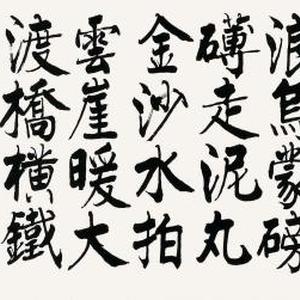 浪烏蒙磅
礴走泥丸
金沙水拍
雲崖暖大
渡橋橫鐵